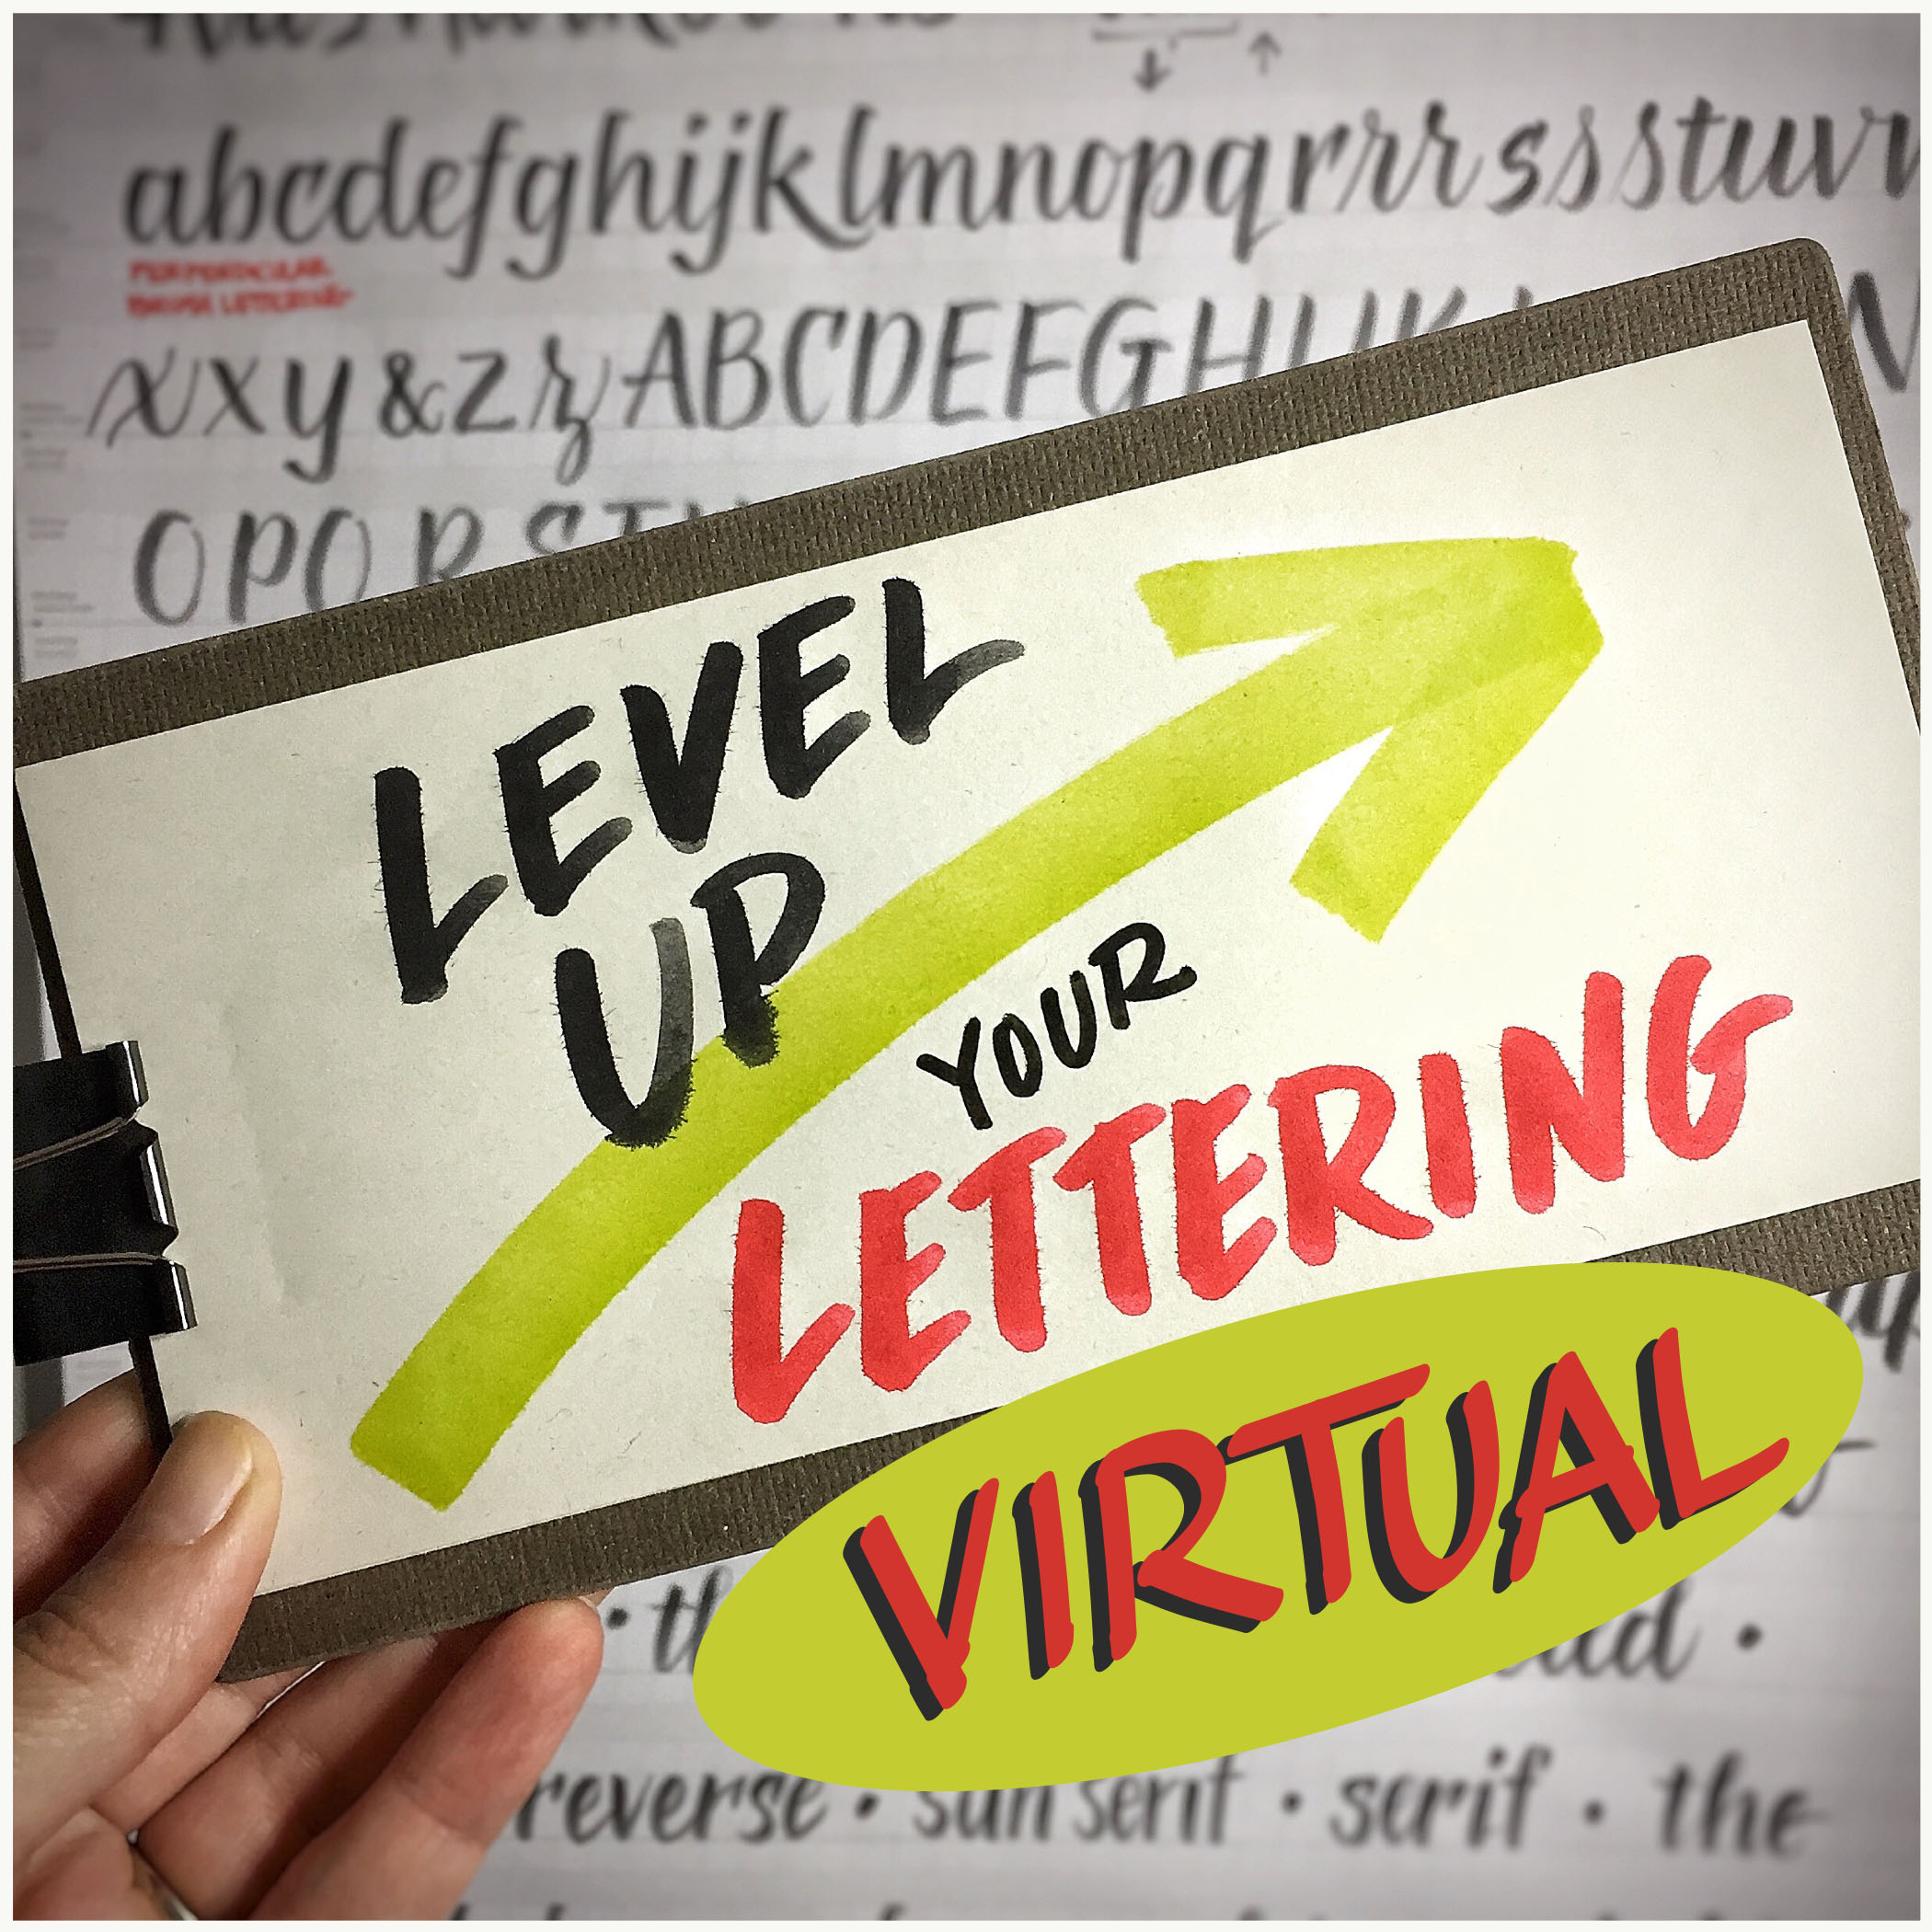 abcdefghijklmnopqrrrssstuv
PERPENDICULAR
BRUSH LETTERING
xxy&zzABCDEFGHIJK N
OPQRST
LEVEL
UP
YOUR
LETTERING
VIRTUAL
reverse • sans serif • serif • the